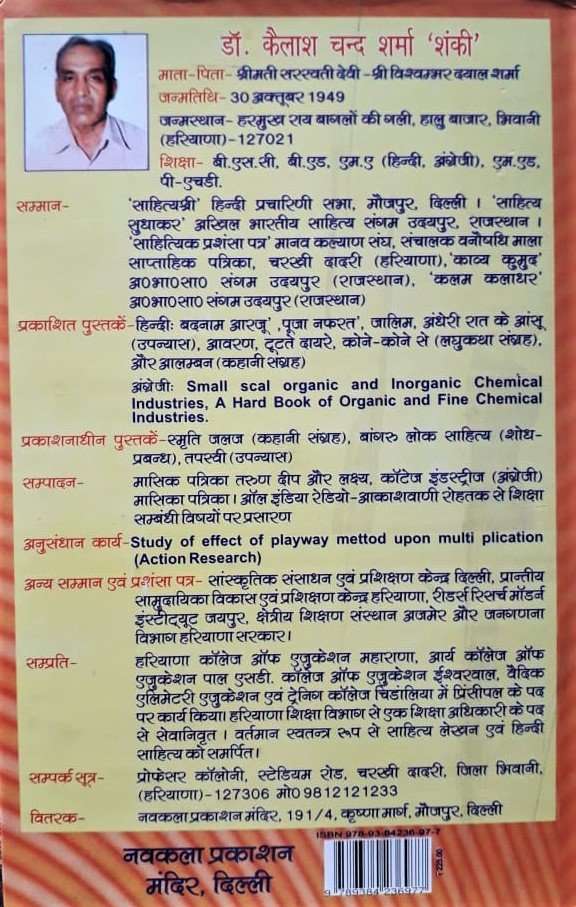 डॉ. कैलाश चन्द शर्मा 'शंकी'
माता-पिता- श्रीमती सरस्वती देवी -श्री विश्वम्भर दयाल शर्मा
जन्मतिथि- 30 अक्तूबर 1949
जन्मस्थान- हरमुख राय बागलों की गली, हालु बाजार, भिवानी
(हरियाणा)-127021
शिक्षा- बी.एस.सी, बी.एड, एम.ए (हिन्दी, अंग्रेजी), एम.एड,
पी-एचडी.
सम्मान- 'साहित्यश्री' हिन्दी प्रचारिणी सभा, मौजपुर, दिल्ली । 'साहित्य
सुधाकर' अखिल भारतीय साहित्य संगम उदयपुर, राजस्थान ।
'साहित्यिक प्रशंसा पत्र' मानव कल्याण संघ, संचालक वनौषधि माला
साप्ताहिक पत्रिका, चरखी दादरी (हरियाणा), 'काव्य कुमुद'
अ०भा०सा० संगम उदयपुर (राजस्थान), 'कलम कलाधर'
अ०भा०सा० संगम उदयपुर (राजस्थान)
प्रकाशित पुस्तकें- हिन्दीः बदनाम आरजू' ,पूजा नफरत', जालिम, अंधेरी रात के आंसू
(उपन्यास), आवरण, टूटते दायरे, कोने-कोने से (लघुकथा संग्रह),
और आलम्बन (कहानी संग्रह)
अंग्रेजीः Small scal organic and Inorganic Chemical
Industries, A Hard Book of Organic and Fine Chemical
Industries.
प्रकाशनाधीन पुस्तकें-स्मृति जलज (कहानी संग्रह), बांगरु लोक साहित्य (शोध-
प्रबन्ध), तपस्वी (उपन्यास)
सम्पादन- मासिक पत्रिका तरुण दीप और लक्ष्य, कॉटेज इंडस्ट्रीज (अंग्रेजी)
मासिका पत्रिका। ऑल इंडिया रेडियो-आकाशवाणी रोहतक से शिक्षा
सम्बंधी विषयों पर प्रसारण
अनुसंधान कार्य-Study of effect of playway mettod upon multi plication
(Action Research)
अन्य सम्मान एवं प्रशंसा पत्र- सांस्कृतिक संसाधन एवं प्रशिक्षण केन्द्र दिल्ली, प्रान्तीय
सामुदायिका विकास एवं प्रशिक्षण केन्द्र हरियाणा, रीडर्स रिसर्च मॉडर्न
इंस्टीट्यूट जयपुर, क्षेत्रीय शिक्षण संस्थान अजमेर और जनगणना
विभाग हरियाणा सरकार।
सम्प्रति- हरियाणा कॉलेज ऑफ एजुकेशन महाराणा, आर्य कॉलेज ऑफ
एजुकेशन पाल एसडी. कॉलेज ऑफ एजुकेशन ईश्वरवाल, वैदिक
एलिमेंटरी एजुकेशन एवं ट्रेनिग कॉलेज चिंडालिया में प्रिंसीपल के पद
पर कार्य किया। हरियाणा शिक्षा विभाग से एक शिक्षा अधिकारी के पद
से सेवानिवृत । वर्तमान स्वतन्त्र रूप से साहित्य लेखन एवं हिन्दी
साहित्य को समर्पित।
सम्पर्क सूत्र- प्रोफेसर कॉलोनी, स्टेडियम रोड, चरखी दादरी, जिला भिवानी,
(हरियाणा)-127306 मो0 9812121233
वितरक- नवकला प्रकाशन मंदिर, 191/4, कृष्णा मार्ग, मौजपुर, दिल्ली
ISBN 978-93-84236-97-7
नवकला प्रकाशन
मंदिर, दिल्ली
9 789384 236977